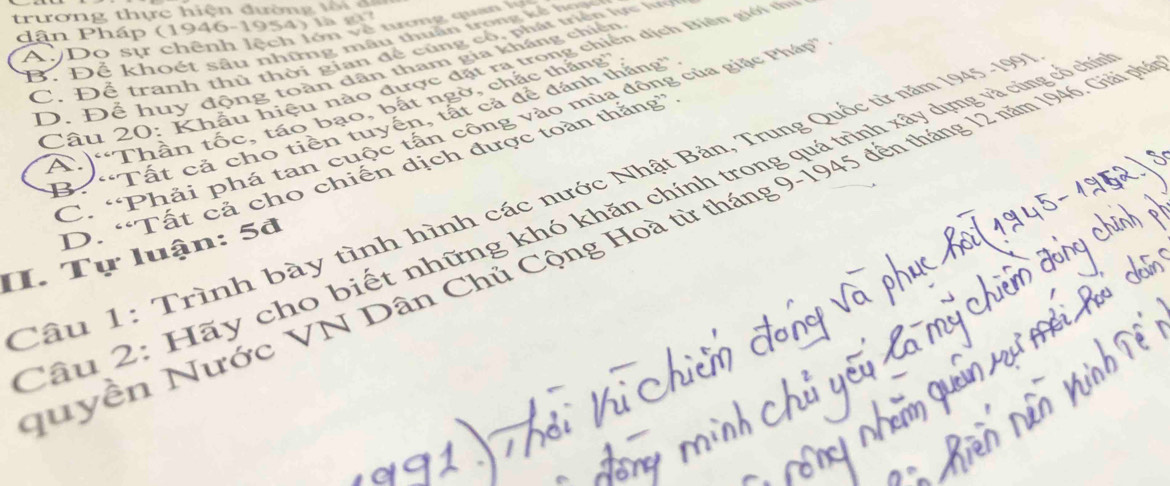 trương thực hiện đường lối
dân Pháp (1946-1954) là gì?
A. Do sự chênh lệch lớn về tương quan
B. Để khoét sâu những mâu thuẫn trong kế hoạch
C. Để tranh thủ thời gian để củng cố, phát triển
D. Để huy động toàn dân tham gia kháng chiến.
Câu 20: Khẩu hiệu nào được đặt ra trong chiến dịch Biên giới thu
A. “Thần tốc, táo bạo, bất ngờ, chắc thắng”.
B. “Tất cả cho tiền tuyến, tất cả để đánh thắng”.
C. “Phải phá tan cuộc tấn công vào mùa đông của giặc Pháp”.
D. “Tất cả cho chiến dịch được toàn thắng”.
II. Tự luận: 5đ
Câu 1: Trình bày tình hình các nước Nhật Bản, Trung Quốc từ năm 1945 -1991.
Câu 2: Hãy cho biết những khó khăn chính trong quá trình xây dựng và củng cố chính
quyền Nước VN Dân Chủ Cộng Hoà từ tháng 9-1945 đến tháng 12 năm 1946. Giải pháp
991.) Thời kì chiếm đóng và phục hồi (1945-1952.)
đồng minh chủ yếu là mỹ chiếm đóng chính
rộng nhằm quân
hiến nền kinh tế